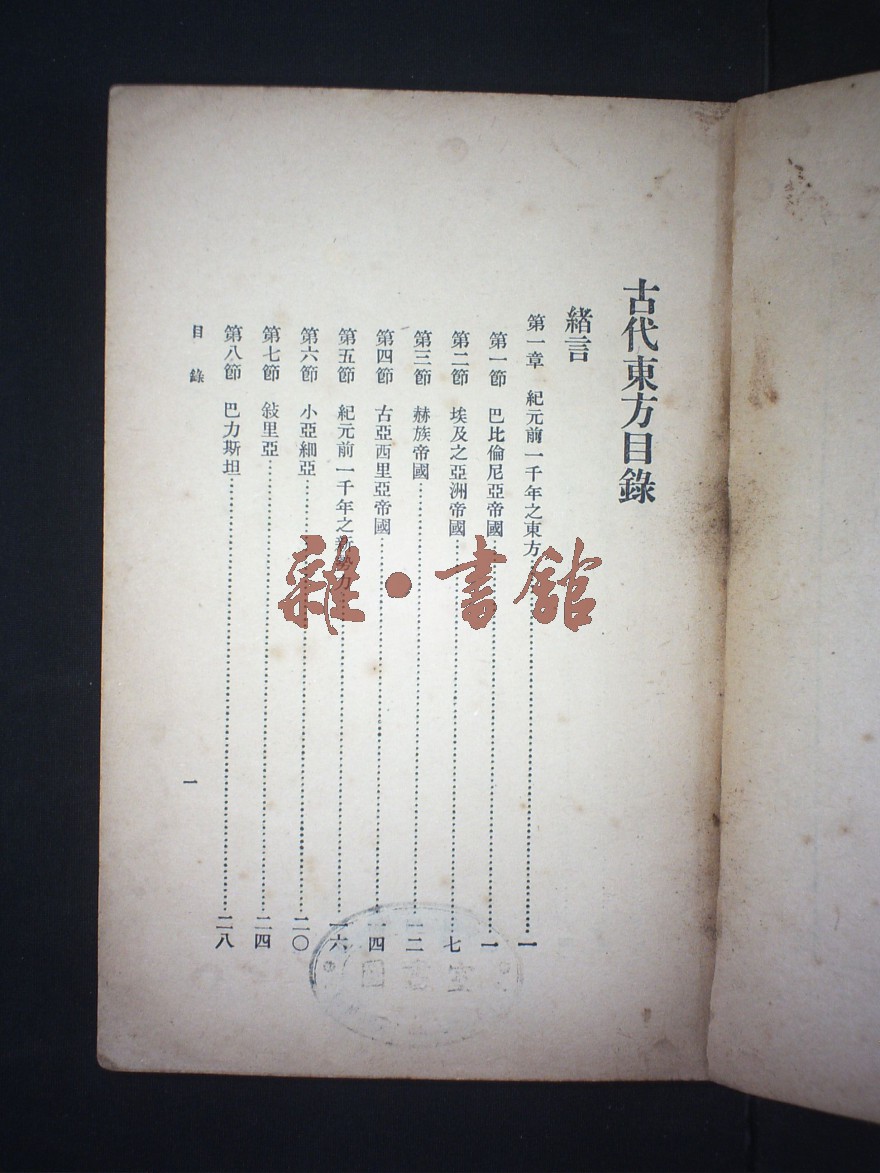 古代東方目錄
緒言
第一章 紀元前一千年之東方……一
第一節 巴比倫尼亞帝國……一
第二節 埃及之亞洲帝國……七
第三節 赫族帝國……一二
第四節 古亞西里亞帝國……一四
第五節 紀元前一千年之新勢力……一六
第六節 小亞細亞……二〇
第七節 敍里亞……二四
第八節 巴力斯坦……二八
目錄 一
雜·書館